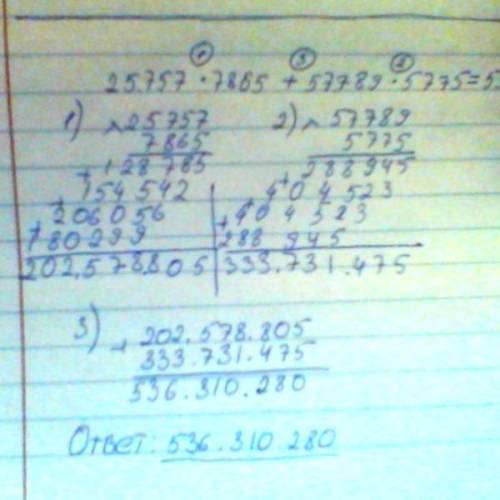 25757 · 7865 + 57789 · 5775 = 5
1) × 25757
7865
+ 128785
+ 154542
+ 206056
180299
202.578.805
2) × 57789
5775
+ 288945
+ 404523
+ 404523
288 945
333.731.475
3) + 202.578.805
333.731.475
536.310.280
Ответ: 536.310 280